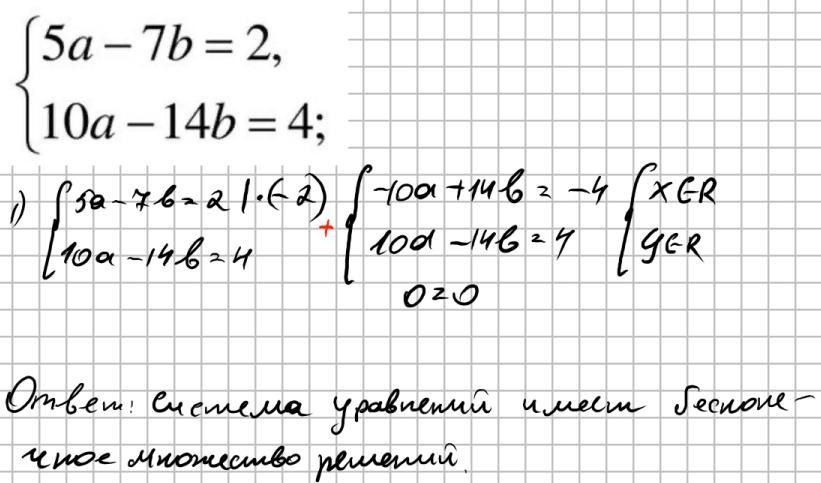 5a − 7b = 2,
10a − 14b = 4;
1) { 5a − 7b = 2 | · (−2) + { −10a + 14b = −4 { x ∈ R
10a − 14b = 4 10a − 14b = 4 y ∈ R
0 = 0
Ответ: система уравнений имеет бесконе-
чное множество решений.